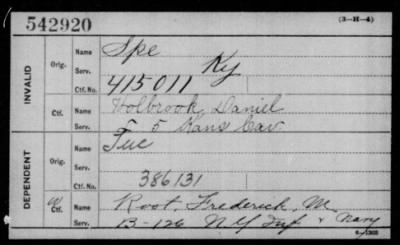 542920
(3-H-4)
INVALID
Orig. Name Spe
Serv. Ky
Ctf. No. 415011
Ctf. Name Holbrook, Daniel
Serv. 5 Kans Cav
DEPENDENT
Orig. Name
Serv.
Ctf. No. 386131
Ctf. Name Root, Frederick, M.
Serv. B-126 N.Y. Inf & Navy